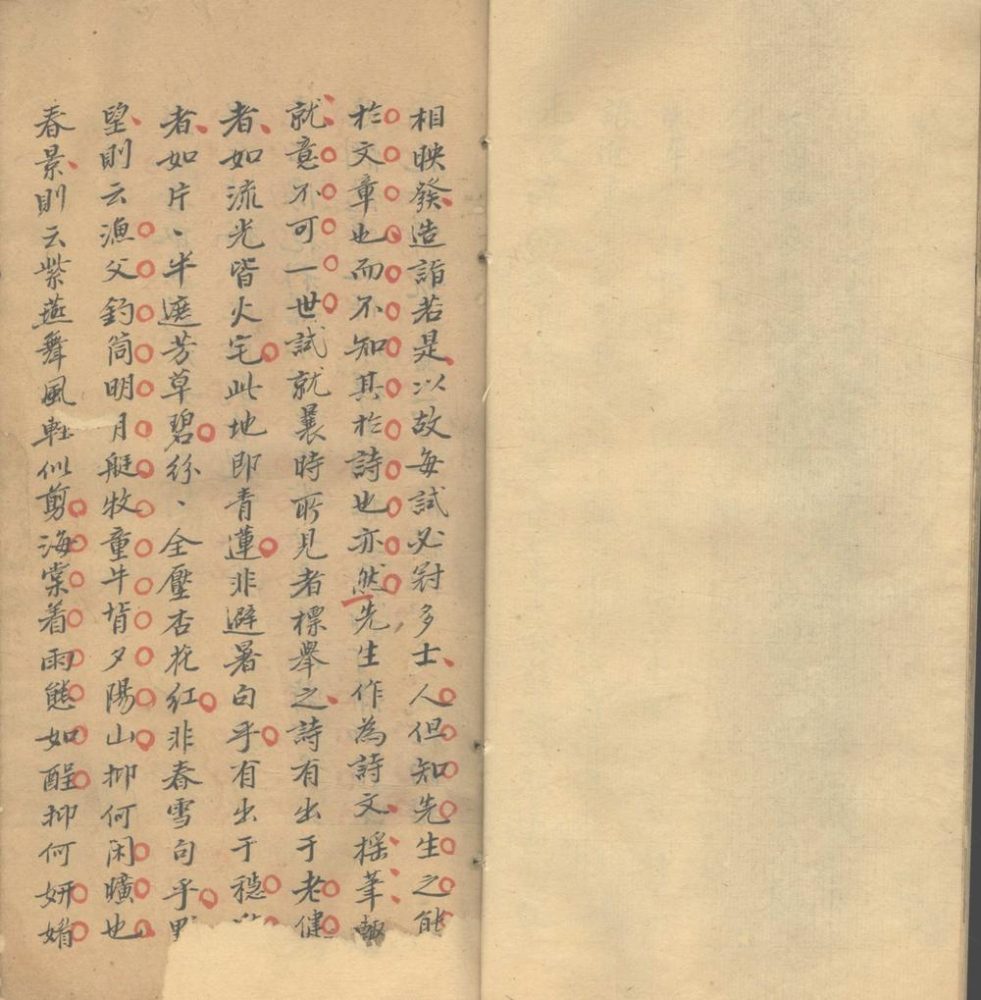 相映發造詣若是以故每試必冠多士人但知先生之能
於文章也而不知其於詩也亦然先生作為詩文搖筆輙
就意不可一世試就曩時所見者標舉之詩有出于老健
者如流光皆火宅此地即青蓮非避暑句乎有出于穠
者如片、半遮芳草碧紛、全壓杏花紅非春雪句乎野
望則云漁父釣筒明月艇牧童牛背夕陽山抑何闲曠也
春景則云紫燕舞風輕似剪海棠着雨態如醒抑何妍媚